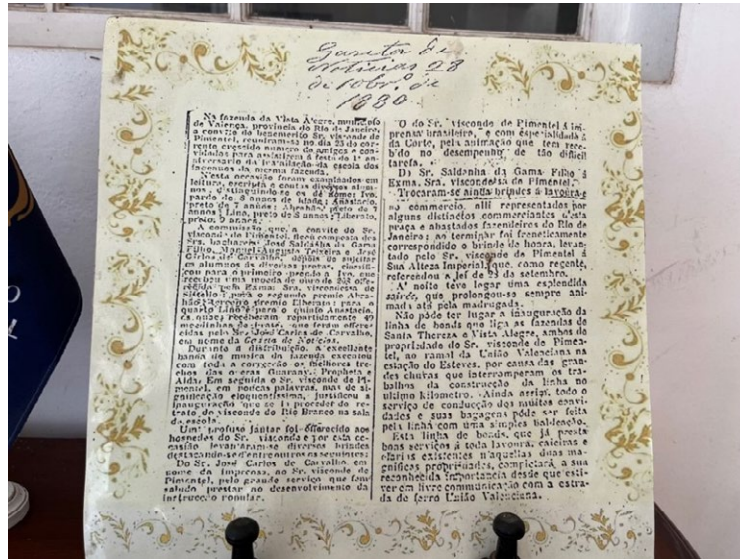 Gazeta de
Noticias 28
de 10brº. de
1880
Na fazenda da Vista Alegre, municipio
de Valença, provincia do Rio de Janeiro,
a convite do benemerito Sr. visconde de
Pimentel, reuniram-se no dia 23 do cor-
rente crescido numero de amigos e con-
vidados para assistirem á festa do 1º an-
niversario da installação da escola dos
da mesma fazenda.
N'esta occasião foram examinados em
leitura, escripta e contas diversos alum-
nos, distinguindo-se os de nome: Ivo,
pardo de 8 annos de idade; Anastacio,
preto de 7 annos; Abrahão, preto de 7
annos; Lino, preto de 8 annos; Liberato,
preto, 9 annos.
A commissão que, a convite do Sr.
visconde de Pimentel, ficou composta dos
Srs. bachareis José Saldanha da Gama
Filho, Manuel Augusto Teixeira e José
Carlos de Carvalho, depois de sujeitar
os alumnos ás diversas provas, classifi-
cou para o primeiro premio a Ivo, que
recebeu uma moeda de ouro de offe-
recida pela Exma. Sra. viscondessa de
para o segundo premio Abra-
hão; terceiro premio Liberato; para o
quarto Lino e para o quinto Anastacio,
os quaes receberam repartidamente
moedinhas de prata, que foram offere-
cidas pelo Sr. José Carlos de Carvalho,
em nome da Gazeta de Noticias.
Durante a distribuição, a excellente
banda de musica da fazenda executou
com toda a correcção os melhores tre-
chos das operas Guarany, Propheta e
Aida. Em seguida o Sr. visconde de Pi-
mentel, em poucas palavras, mas de si-
gnificação eloquentissima, justificou a
inauguração que se ia proceder do re-
trato do visconde do Rio Branco na sala
da escola.
Um profuso jantar foi offerecido aos
hospedes do Sr. visconde e por esta oc-
casião levantaram-se diversos brindes
destacando-se d'entre outros os seguintes:
Do Sr. José Carlos de Carvalho, em
nome da imprensa, ao Sr. visconde de
Pimentel, pelo grande serviço que tem
sabido prestar no desenvolvimento da
instrucção popular.
O do Sr. visconde de Pimentel á im-
prensa brazileira, e com especialidade á
da Côrte, pela animação que tem rece-
bido no desempenho de tão difficil
tarefa.
Do Sr. Saldanha da Gama Filho á
Exma. Sra. viscondessa de Pimentel.
Trocaram-se ainda brindes á lavoura e
ao commercio, alli representados por
alguns distinctos commerciantes d'esta
praça e abastados fazendeiros do Rio de
Janeiro; ao terminar foi freneticamente
correspondido o brinde de honra, levan-
tado pelo Sr. visconde de Pimentel á
Sua Alteza Imperial, que, como regente,
referendou a lei de 28 de setembro.
A' noite teve logar uma esplendida
soirée, que prolongou-se sempre ani-
mada até pela madrugada.
Não póde ter lugar a inauguração da
linha de bonds que liga as fazendas de
Santa Thereza a Vista Alegre, ambas de
propriedade do Sr. visconde de Pimen-
tel, no ramal da União Valenciana na
estação do Esteves, por causa das gran-
des chuvas que interromperam os tra-
balhos da construcção da linha no
ultimo kilometro. Ainda assim, todo o
serviço de conducção dos muitos convi-
dados e suas bagagens póde ser feita
pela linha com uma simples baldeação.
Esta linha de bonds, que já presta
bons serviços á toda lavoura, caieiras e
olarias existentes n'aquellas duas ma-
gnificas propriedades, completará a sua
reconhecida importancia desde que esti-
ver em livre communicação com a estra-
da de ferro União Valenciana.